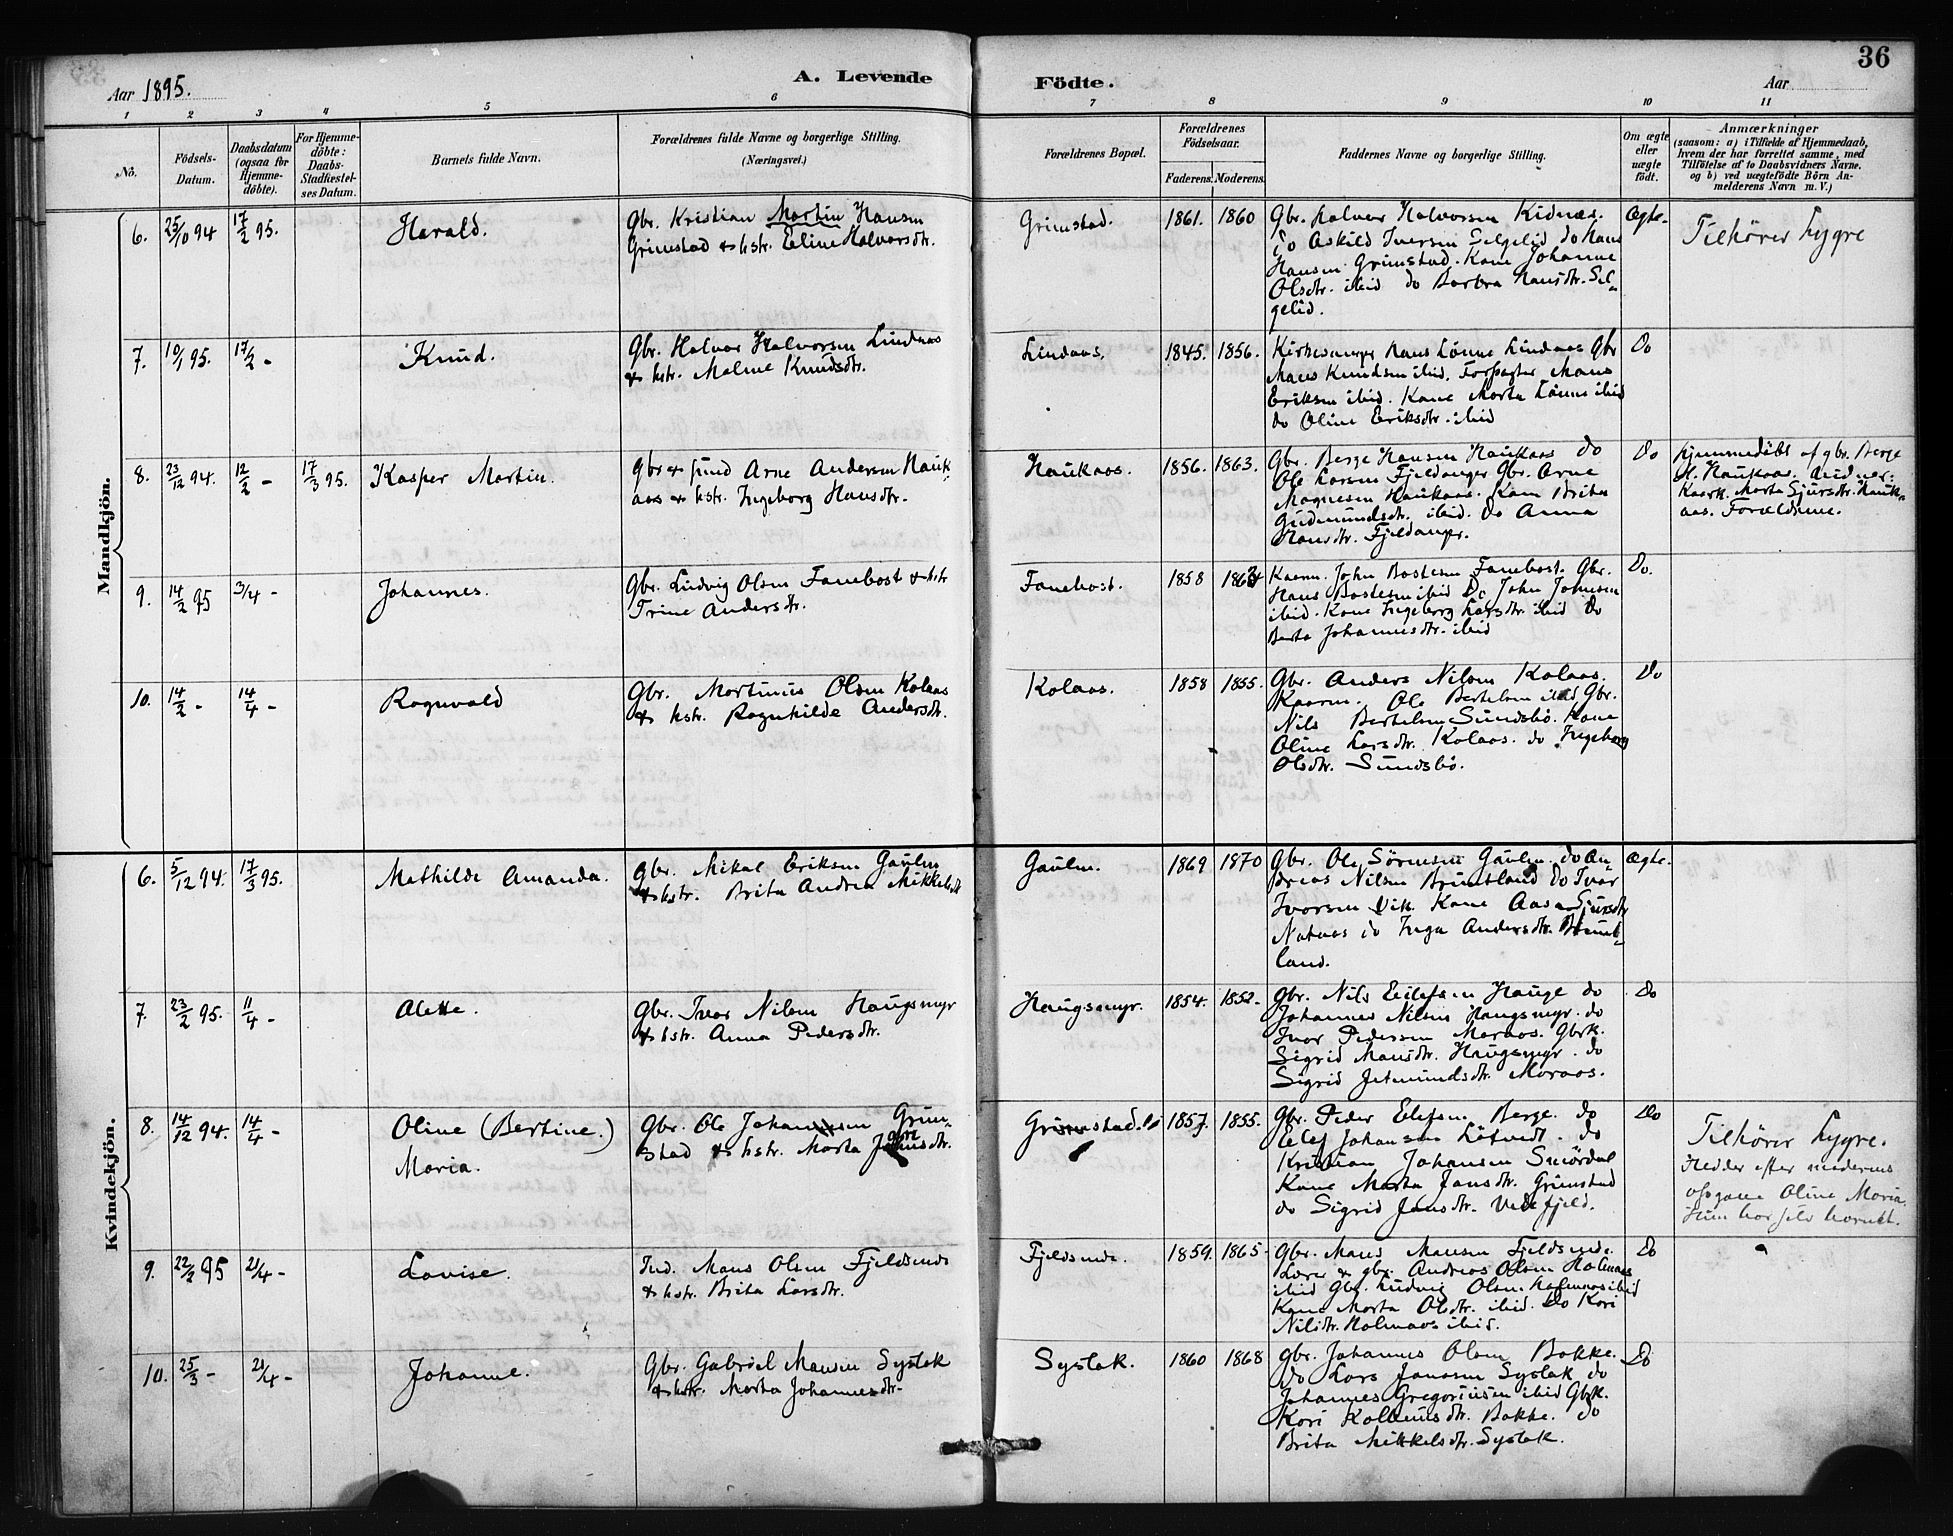 36
Aar 1895.
A. Levende
Födte.
Aar
1 2 3 4 5 6 7 8 9 10 11
No.
Födsels-Datum.
Daabsdatum (ogsaa for Hjemme-döbte).
For Hjemme-döbte: Daabs-Stadfæstel-ses Datum.
Barnets fulde Navn.
Forældrenes fulde Navne og borgerlige Stilling. (Næringsvei.)
Forældrenes Bopæl.
Forældrenes Födselsaar.
Faderens. Moderens.
Faddernes Navne og borgerlige Stilling.
Om ægte eller uægte födt.
Anmærkninger
(saasom: a) i Tilfælde af Hjemmedaab,
hvem der har forrettet samme, med
Tilföielse af to Daabsvidners Navne.
og b) ved uægtefödte Börn An-
melderens Navn m. V.)
Mandkjön.
6. 25/10 94 17/2 95. Harald.
Gbr. Kristian Martin Hansen
Grimstad & hstr. Eline Halvorsdtr.
Grimstad. 1861. 1860
Gbr. Halvor Halvorsen Kidnes.
Do Askild Iversen Selgelid do Hans
Hansen Grimstad. Kone Johanne
Olsdtr. ibid do Barbra Hansdtr. Sel-
gelid.
Ægte.
Tilhører Lygre
7. 10/1 95. 17/2 - Knud.
Gbr. Halvor Halvorsen Lindaas
& hstr. Malene Knudsdtr.
Lindaas. 1845. 1856.
Kirkesanger Hans Lønne Lindaas Gbr
Mans Knudsen ibid. Forpagter Mans
Eriksen ibid. Kone Marta Lønne ibid
do Oline Eriksdtr. ibid
Do
8. 23/12 94. 12/2 - 17/3 95. Kasper Martin.
Gbr & Arne Andersen Hauk-
aas & hstr. Ingeborg Hansdtr.
Haukaas. 1856. 1863.
Gbr. Berge Hansen Haukaas do
Ole Larsen Fjeldanger Gbr. Arne
Magnesen Haukaas. Kone Brita
Gudmundsdtr. ibid. Do Anna
Hansdtr. Fjeldanger.
Do
Hjemmedöbt af gbr. Berge
H. Haukaas. Vidner:
Kaark. Marta Sjursdtr. Hauk-
aas. Forældrene.
9. 14/2 95 3/4 - Johannes.
Gbr. Ludvig Olsen Fanebost & hstr
Trine Andersdtr.
Fanebost. 1858
Kaarm. John Bostesen Fanebost. Gbr.
Hans Bostesen ibid Do John Johnsen
ibid. Kone Ingeborg Larsdtr. ibid Do
Berta Johannesdtr. ibid
Do.
10. 14/2 - 14/4 - Ragnvald
Gbr. Martinus Olsen Kolaas
& hstr. Ragnhilde Andersdtr.
Kolaas. 1858 1855.
Gbr. Anders Nilsen Kolaas.
Kaarm. Ole Bertelsen ibid Gbr.
Nils Bertelsen Sundsbö. Kone
Oline Larsdtr. Kolaas. do Ingeborg
Olsdtr. Sundsbö.
Do
Kvindekjön.
6. 5/12 94. 17/3 95. Mathilde Amanda.
Gbr. Mikal Eriksen Gaulen
& hstr. Brita Andrea Mikkelsdtr
Gaulen. 1869 1870
Gbr. Ole Sörensen Gaulen. do An-
dreas Nilsen Bruntland Do Ivar
Ivarsen Vik. Kone Aasa Sjursdtr
Nataas do Inga Andersdtr. Brunt-
land.
Ægte.
7. 23/2 95. 11/4 - Alette.
Gbr. Ivar Nilsen Haugsmyr
& hstr. Anna Pedersdtr.
Haugsmyr. 1854. 1852.
Gbr. Nils Eilefsen Hauge do
Johannes Nilsen Haugsmyr. do
Ivar Pedersen Maraas. Gbrk.
Sigrid Mansdtr. Haugsmyr. do
Sigrid Jetmundsdtr. Maraas.
Do
8. 14/12 94. 14/4 - Oline (Bertine.)
Maria.
Gbr. Ole Johannesen Grim-
stad & hstr. Marta
Grimstad. 1857. 1855.
Gbr. Peder Elefsen Berge. do
Elef Johansen Lötvedt. do
Kristian Johansen Smördal
Kone Marta Jansdtr. Grimstad
do Sigrid Jansdtr. Vedefjeld.
Do
Tilhører Lygre.
Hedder efter moderens
opgave Oline Maria.
9. 22/2 95 21/4 - Lovise.
Ind. Mans Olsen Fjeldsende
& hstr. Brita Larsdtr.
Fjeldsende. 1859. 1865.
Gbr. Mans Mansen Fjeldsende.
Lærer & gbr. Andreas Olsen Holmaas
ibid Gbr. Ludvig Olsen. Holmaas ibid
Kone Marta Olsdtr. ibid. Do Kari
Nilsdtr. Holmaas ibid.
Do
10. 25/3 - 21/4 - Johanne.
Gbr. Gabriel Mansen Syslak
& hstr. Marta Johannesdtr.
Syslak. 1860 1868
Gbr. Johannes Olsen Bakke.
Do Lars Jansen Syslak do
Johannes Gregoriusen ibid Gbrk.
Kari Kolbeinsdtr. Bakke. do
Brita Mikkelsdtr. Syslak.
Do